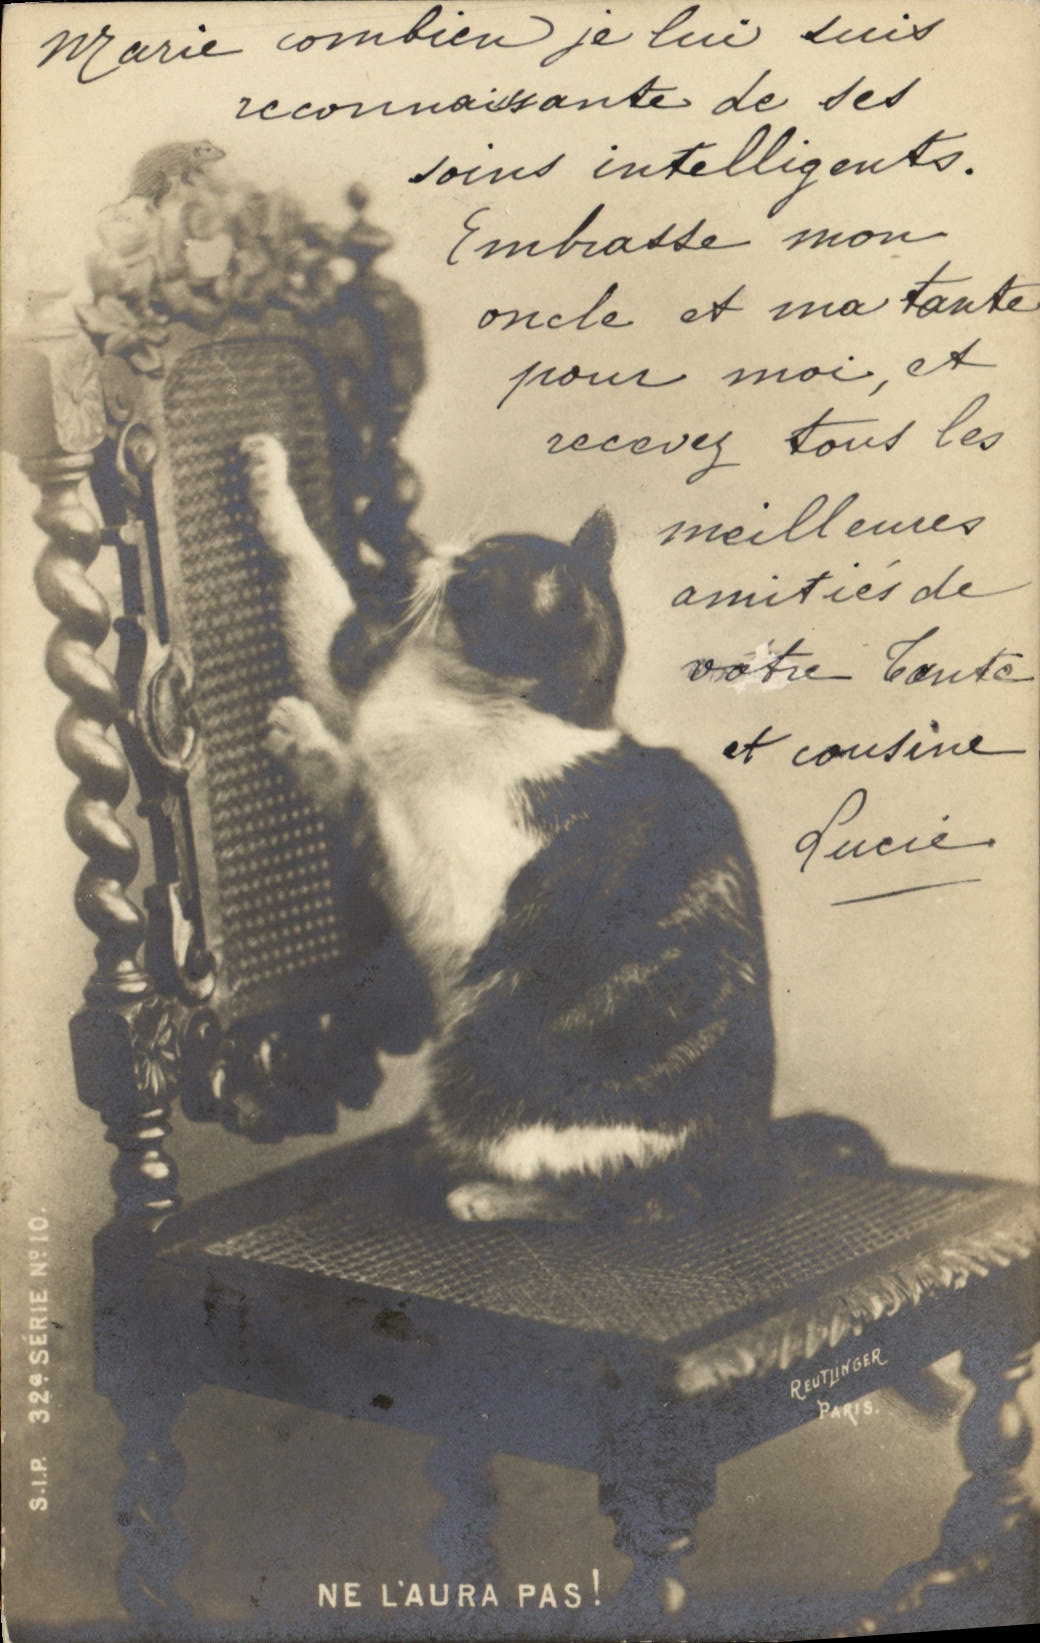 Marie combien je lui suis
reconnaissante de ses
soins intelligents.
Embrasse mon
oncle et ma tante
pour moi, et
recevez tous les
meilleures
amitiés de
votre Tante
et cousine
Lucie
S.I.P. 32e. SÉRIE No. 10.
REUTLINGER
PARIS.
NE L'AURA PAS!